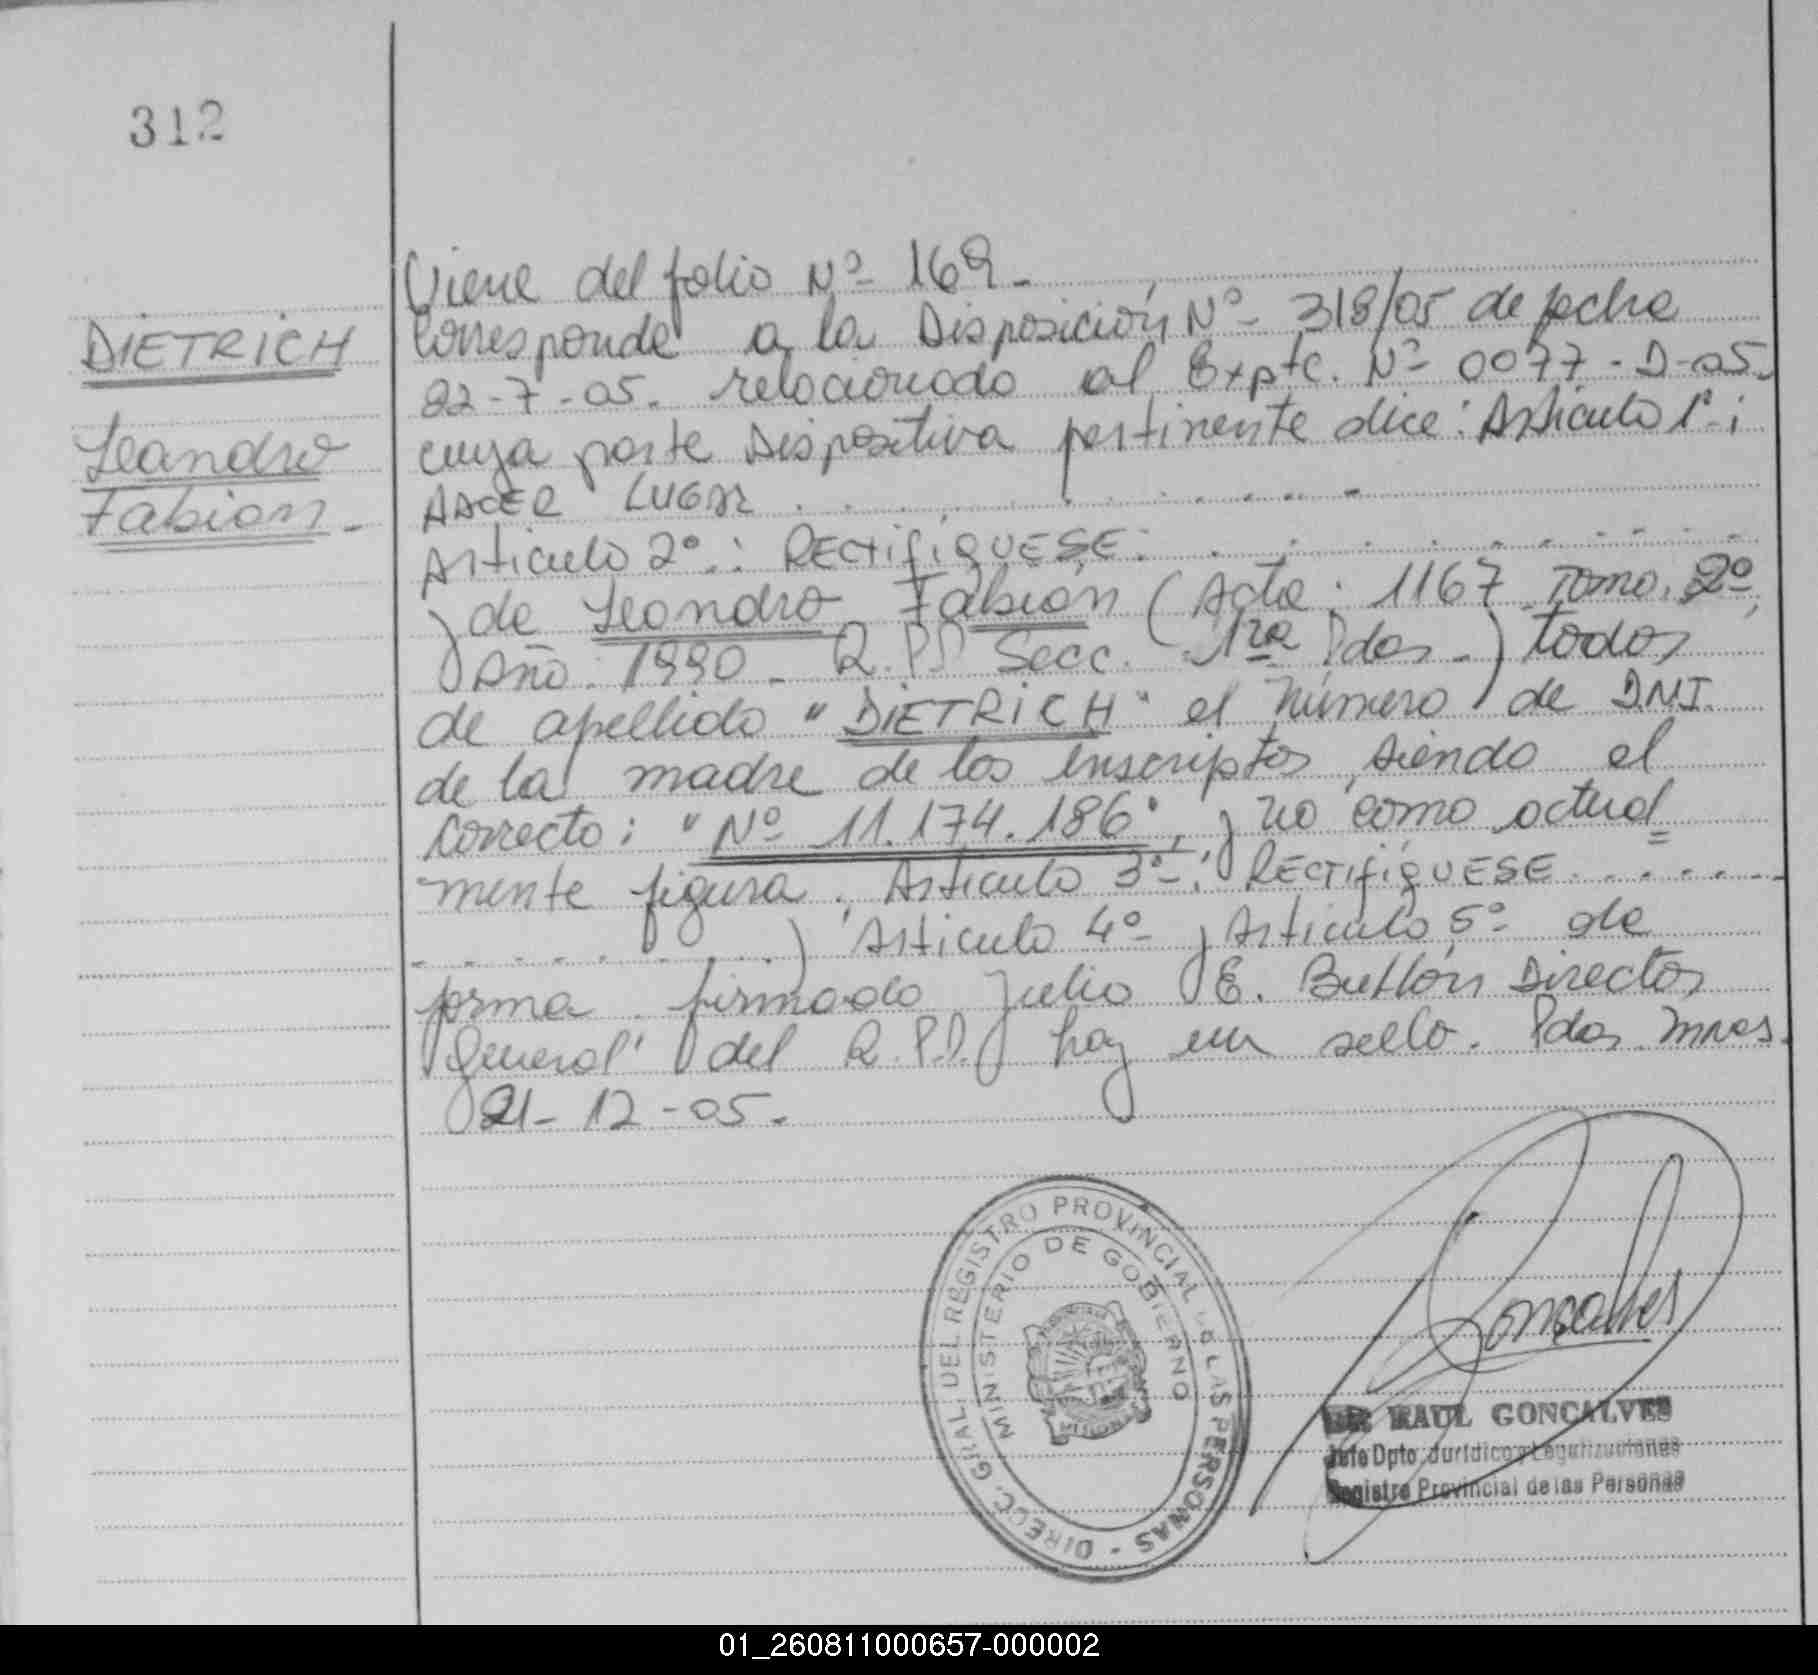 312
DIETRICH
Leandro
Fabian.-
Viene del folio Nº 169.-
Corresponde a la Disposición Nº 318/05 de fecha
22-7-05. relacionado al Expte. Nº 0077-D-05.
cuya parte Dispositiva pertinente dice: Artículo 1º:
HACER LUGAR . . . . . . . . . . . -
Artículo 2º.: RECTIFÍQUESE: . . . . . . . . . .
y de Leandro Fabián (Acta: 1167 Tomo. 2º,
Año: 1990 - R.P.P Secc. 1ra Pdas.-) todos
de apellido "DIETRICH" el número de D.N.I.
de la madre de los inscriptos, siendo el
correcto: "Nº 11.174.186", y no como actual=
mente figura. Artículo 3º-: RECTIFÍQUESE . . . . . . .
. . . . . . . . .) Artículo 4º y Artículo 5º de
forma firmado Julio E. Butlón Director
General del R.P.P. hay un sello. Pdas. Mnes.
21-12-05.
DIRECC. GRAL. DEL REGISTRO PROVINCIAL DE LAS PERSONAS -
MINISTERIO DE GOBIERNO
Goncalves
DR RAUL GONCALVES
Jefe Dpto. Jurídico y Legalizaciones
Registro Provincial de las Personas
01_260811000657-000002